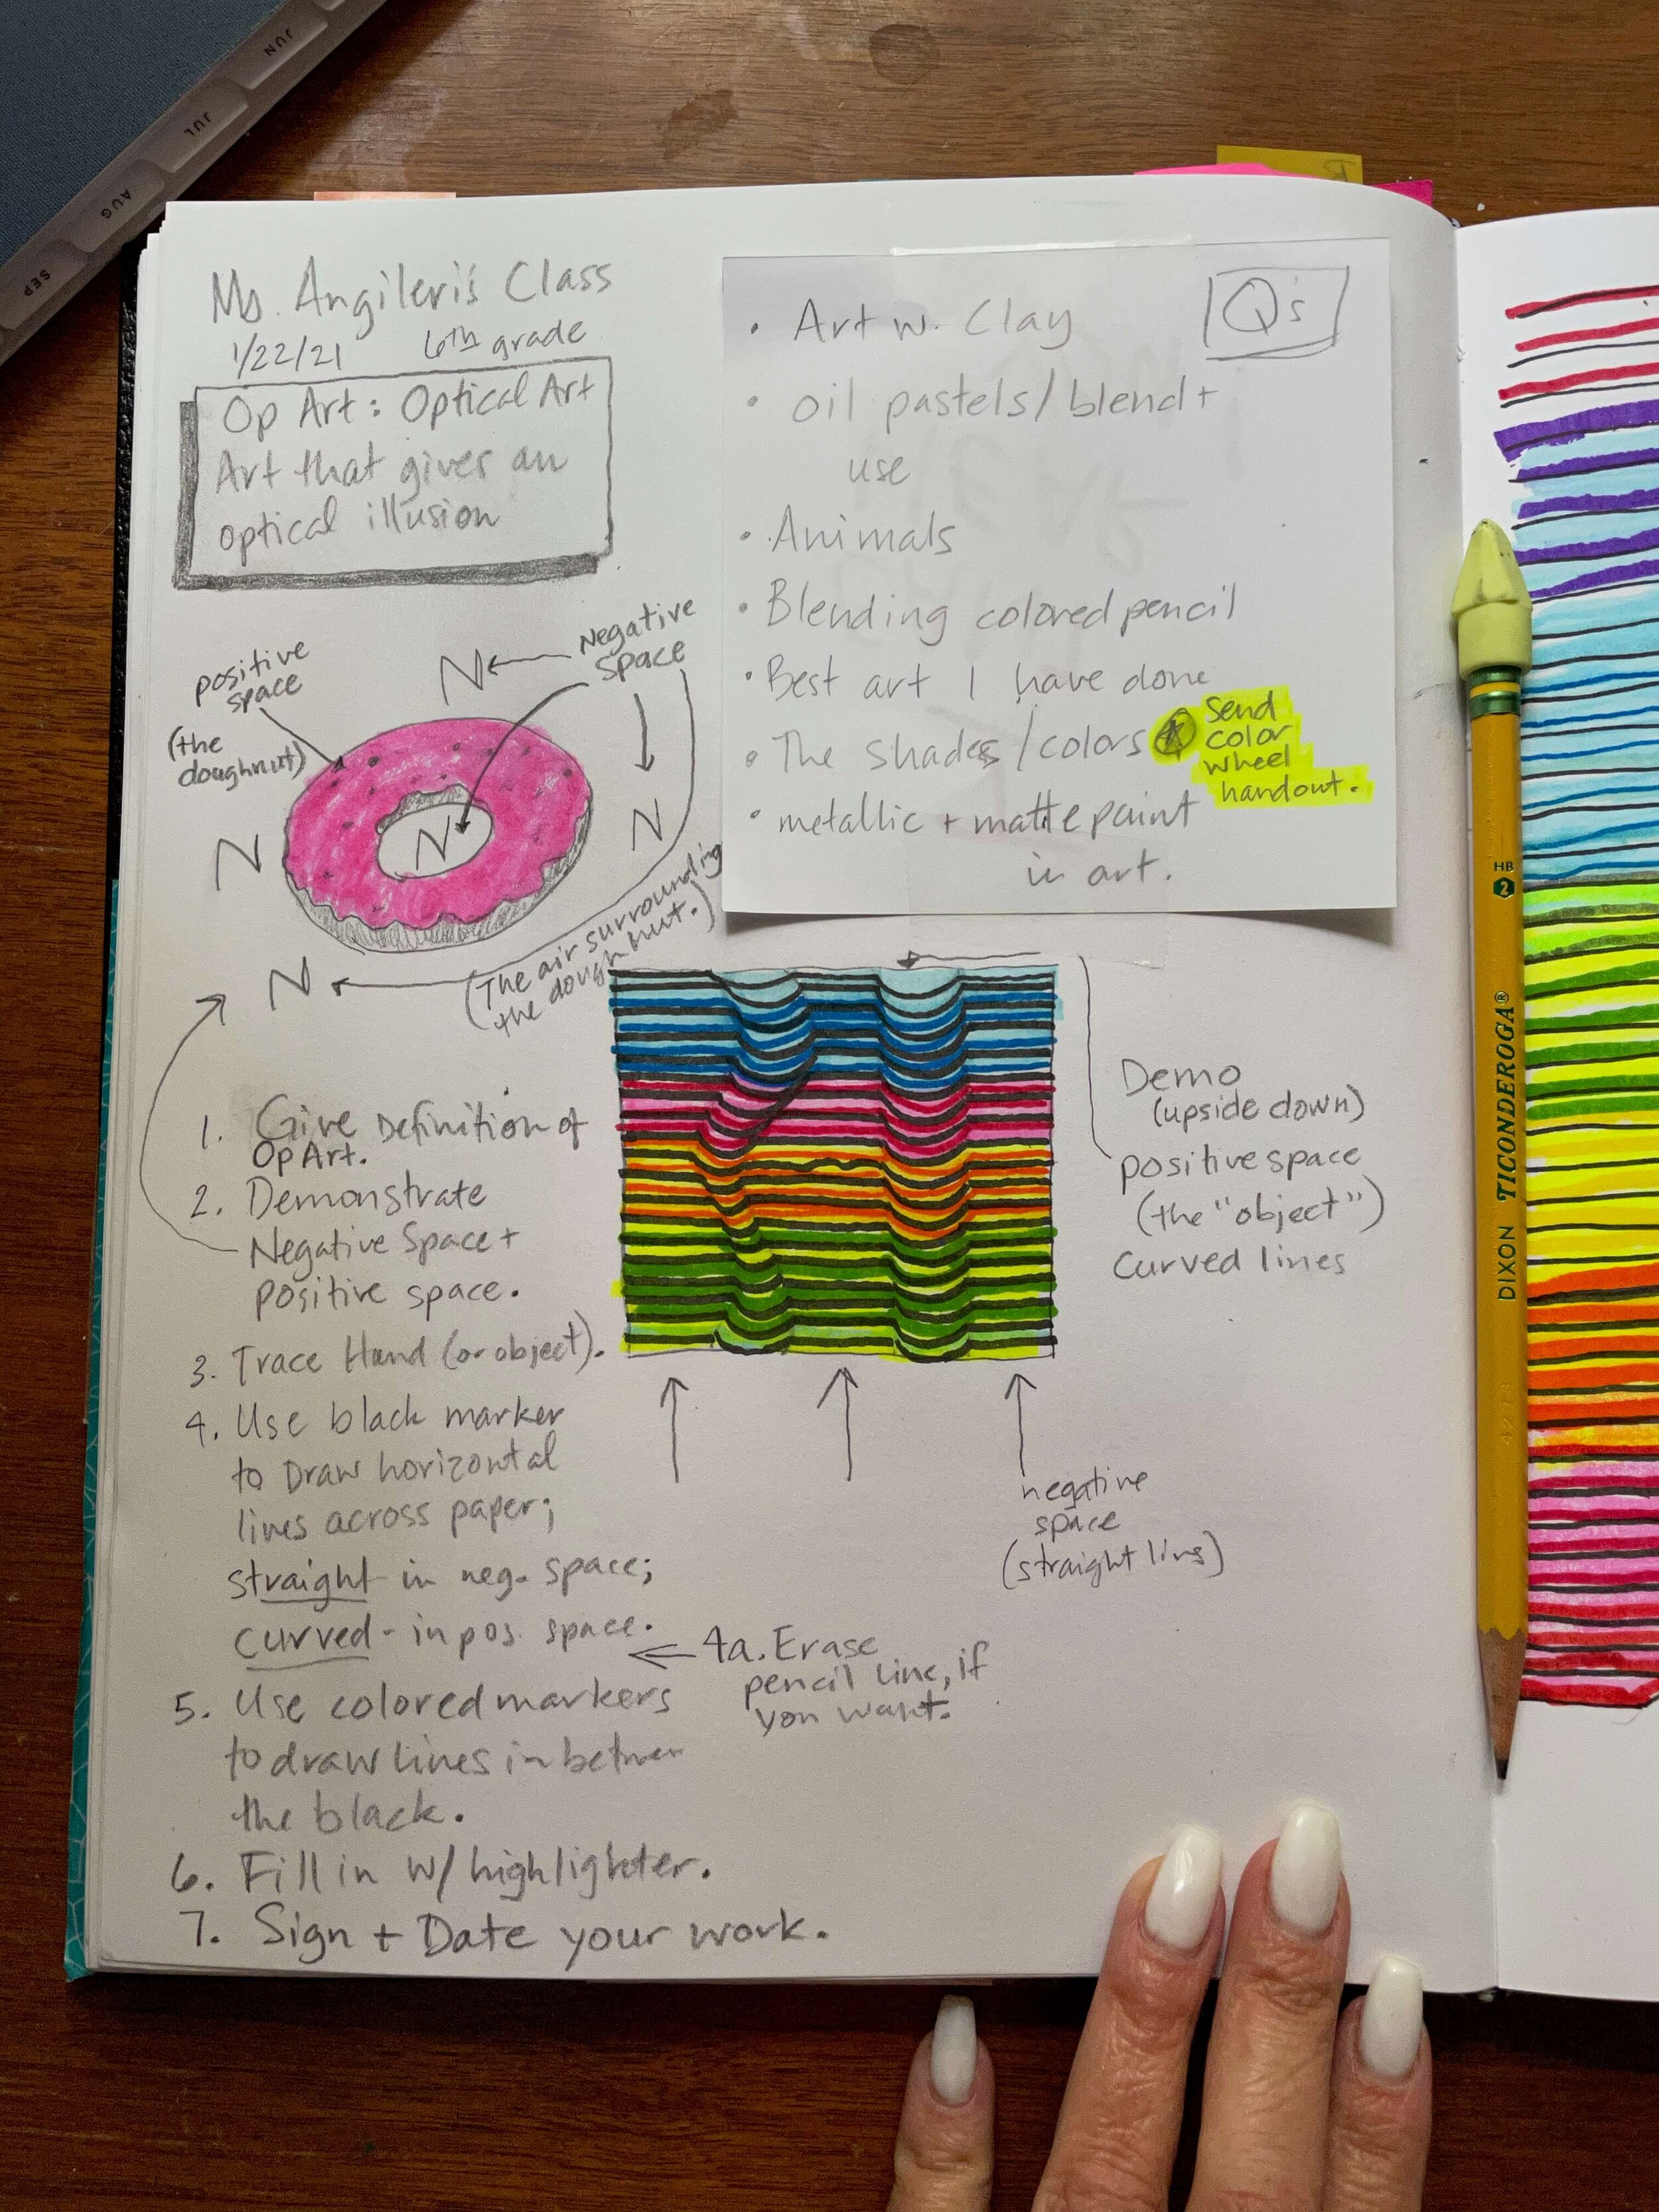 JUN
JUL
AUG
SEP
Ms. Angileri's Class
1/22/21 6th grade
Op Art: Optical Art
Art that gives an
optical illusion
Q's
• Art w. Clay
• oil pastels/blend +
use
• Animals
• Blending colored pencil
• Best art I have done
• The shades/colors
Send
color
wheel
handout.
• metallic + matte paint
in art.
positive
space
(the
doughnut)
Negative
space
N
N
N
N
N
(The air surrounding
the doughnut.)
1. Give Definition of
Op Art.
2. Demonstrate
Negative Space +
positive space.
3. Trace Hand (or object).
4. Use black marker
to Draw horizontal
lines across paper;
straight in neg. space;
curved - in pos. space.
4a. Erase
pencil line, if
you want.
5. Use colored markers
to draw lines in between
the black.
6. Fill in w/ highlighter.
7. Sign + Date your work.
Demo
(upside down)
positive space
(the "object")
Curved lines
negative
space
(straight lins)
DIXON TICONDEROGA® HB 2